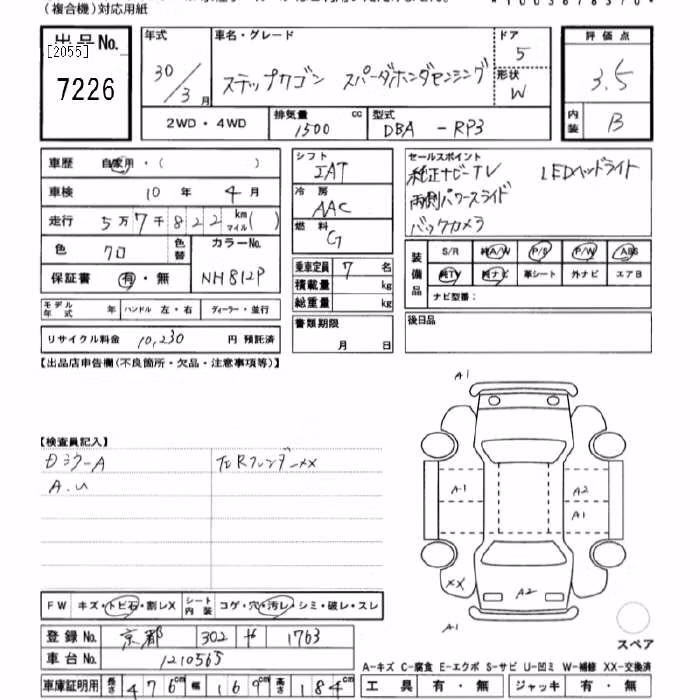 (複合機)対応用紙
出品No.
[2055]
7226
年式 車名・グレード ドア 評価点
30/3月 ステップワゴン スパーダホンダセンシング 5 3.5
形状 W
2WD・4WD 排気量 1500 cc 型式 DBA - RP3 内装 B
車歴 自家用・( )
車検 10年 4月
走行 5万7千822 km マイル( )
色 クロ 色替 カラーNo. NH812P
保証書 有・無
モデル年式 年 ハンドル 左・右 ディーラー・並行
リサイクル料金 10,230 円 預託済
シフト IAT
冷房 AAC
燃料 G
乗車定員 7 名
積載量 kg
総重量 kg
書類期限 月 日
セールスポイント
純正ナビ-TV LEDヘッドライト
両側パワースライド
バックカメラ
装備品 S/R 純A/W P/S P/W ABS
純TV 純ナビ 革シート 外ナビ エアB
ナビ型番:
後日品
【出品店申告欄(不良箇所・欠品・注意事項等)】
【検査員記入】
A.U
FW キズ・トビ石・割レX シート内装 コゲ・穴・汚レ・シミ・破レ・スレ
登録No. 京都 302 や 1763
車台No. 1210565
車庫証明用 長さ 476cm 幅 169cm 高さ 184cm
A1
A1 A2
A1
XX A2
A1
スペア
A-キズ C-腐食 E-エクボ S-サビ U-凹ミ W-補修 XX-交換済
工具 有・無 ジャッキ 有・無